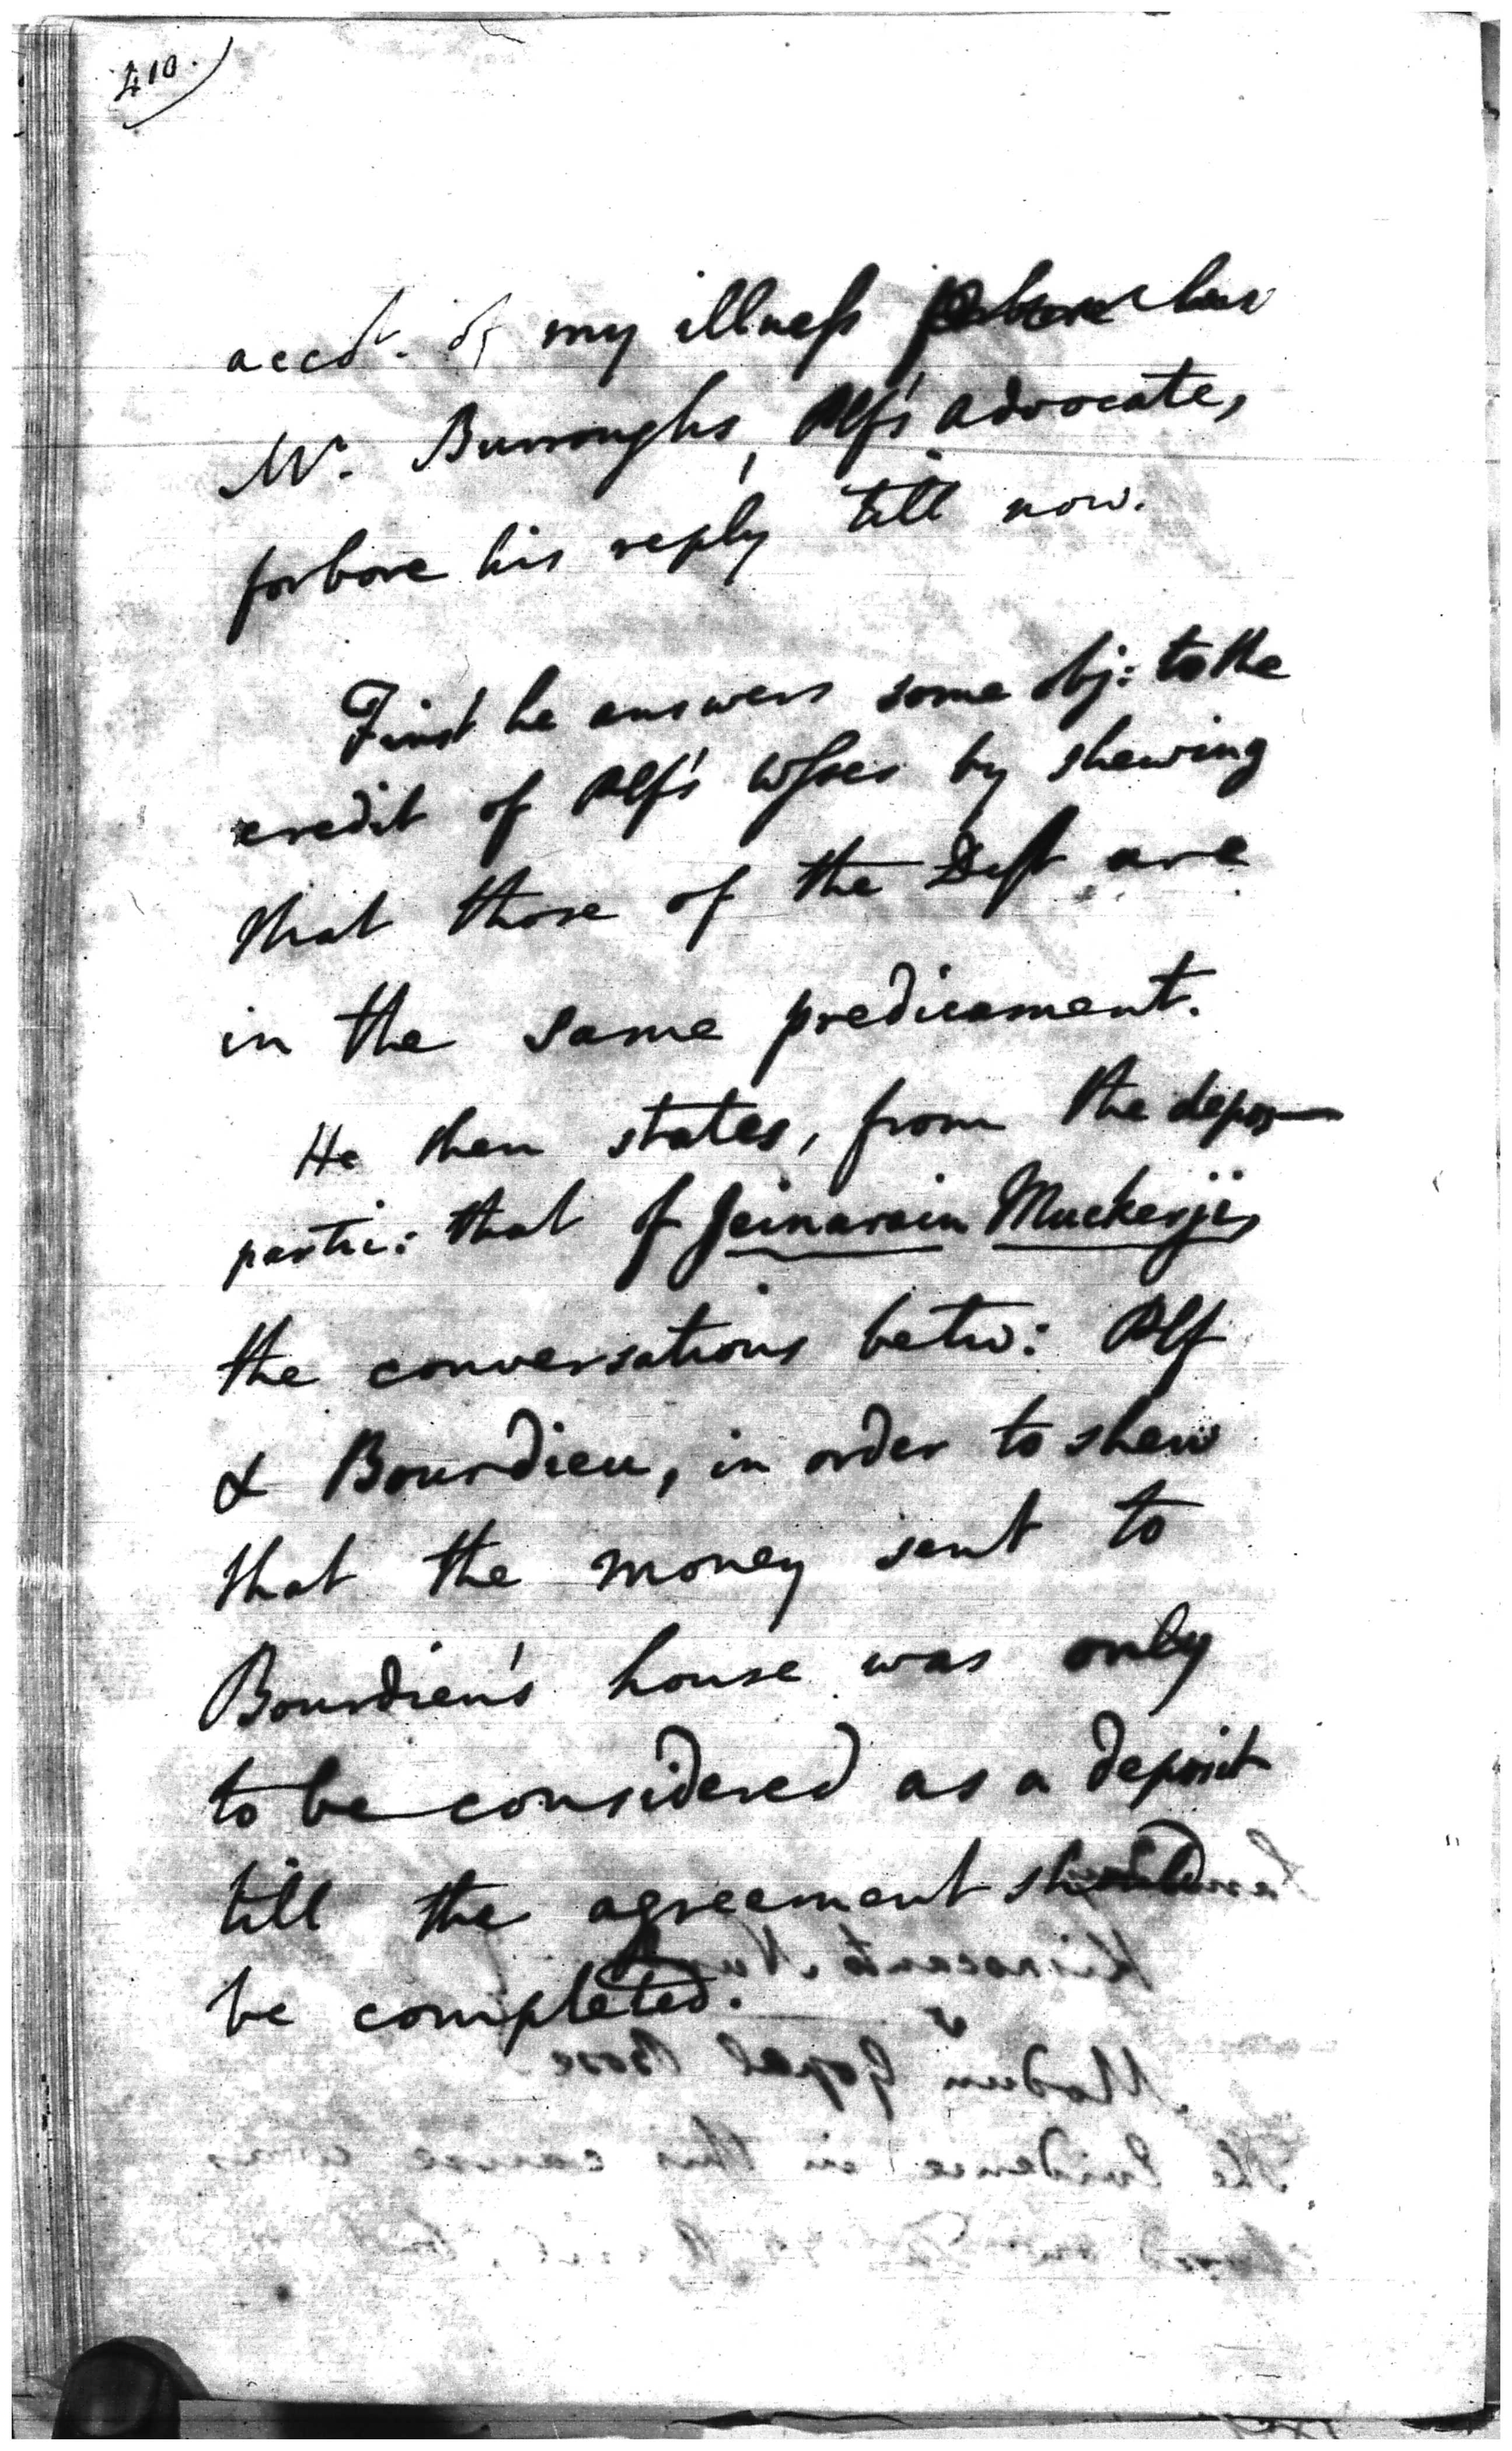 410.
accot. of my illness
Mr. Burroughs, Plf's advocate,
forbore his reply till now.
First he answers some obj: to the
credit of Plf's Wsses by shewing
that those of the Deft are
in the same predicament.
He then states, from the depos—
partic: that of Jeinarain Muckerji,
the conversations betw: Plf
& Bourdieu, in order to shew
that the money sent to
Bourdieu's house was only
to be considered as a deposit
till the agreement should
be completed.